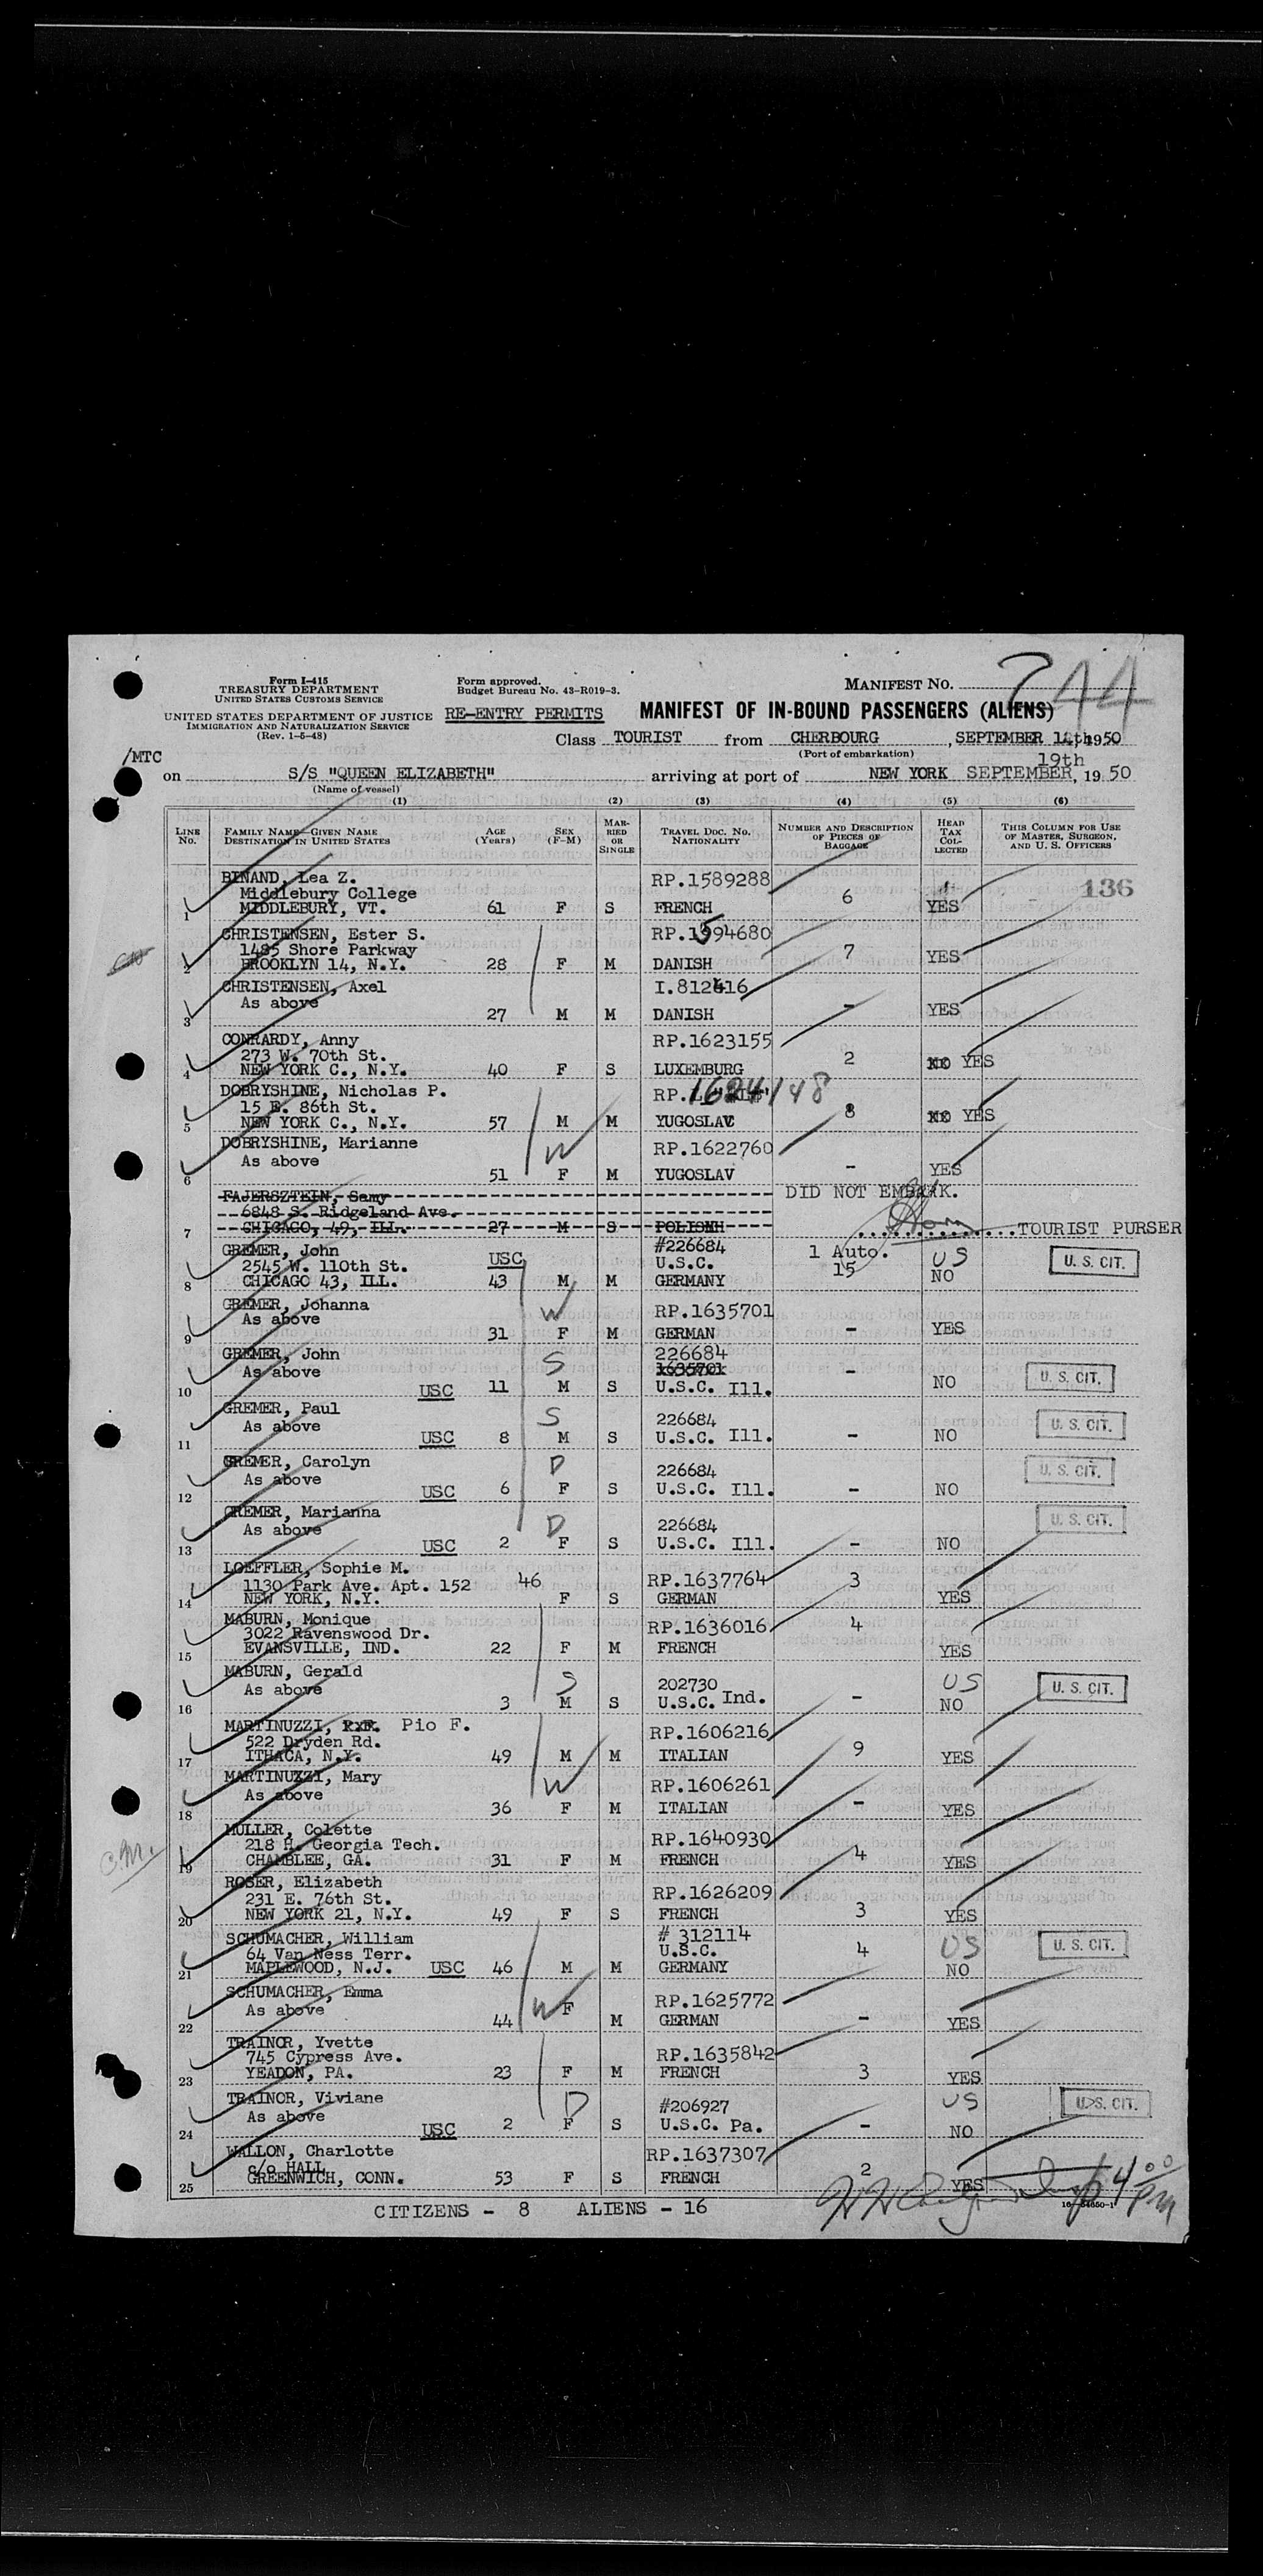 Form I-415
TREASURY DEPARTMENT
UNITED STATES CUSTOMS SERVICE
UNITED STATES DEPARTMENT OF JUSTICE
IMMIGRATION AND NATURALIZATION SERVICE
(Rev. 1-5-48)
Form approved.
Budget Bureau No. 43-R019-3.
MANIFEST NO. 744
RE-ENTRY PERMITS MANIFEST OF IN-BOUND PASSENGERS (ALIENS)
Class TOURIST from CHERBOURG, SEPTEMBER 14th, 1950
(Port of embarkation)
/MTC
19th
on S/S "QUEEN ELIZABETH" arriving at port of NEW YORK SEPTEMBER, 19 50
(Name of vessel)
(1) (2) (3) (4) (5) (6)
LINE No. FAMILY NAME—GIVEN NAME DESTINATION IN UNITED STATES AGE (Years) SEX (F-M) MARRIED OR SINGLE TRAVEL DOC. NO. NATIONALITY NUMBER AND DESCRIPTION OF PIECES OF BAGGAGE HEAD TAX COLLECTED THIS COLUMN FOR USE OF MASTER, SURGEON, AND U. S. OFFICERS
136
BINAND, Lea Z. RP.1589288
Middlebury College 6
1 MIDDLEBURY, VT. 61 F S FRENCH YES
CHRISTENSEN, Ester S. RP.1594680
1485 Shore Parkway 7 YES
2 BROOKLYN 14, N.Y. 28 F M DANISH
CHRISTENSEN, Axel I.812616
As above - YES
3 27 M M DANISH
CONRARDY, Anny RP.1623155
273 W. 70th St. 2 NO YES
4 NEW YORK C., N.Y. 40 F S LUXEMBURG
DOBRYSHINE, Nicholas P. RP. 1624148
15 E. 86th St. 8 NO YES
5 NEW YORK C., N.Y. 57 M M YUGOSLAV
DOBRYSHINE, Marianne W RP.1622760
As above - YES
6 51 F M YUGOSLAV
FAJERSZTEIN, Samy DID NOT EMBARK.
6848 S. Ridgeland Ave.
7 CHICAGO, 49, ILL. 27 M S POLISH TOURIST PURSER
GREMER, John #226684 1 Auto. US
2545 W. 110th St. USC U.S.C. 15 U. S. CIT.
8 CHICAGO 43, ILL. 43 M M GERMANY NO
GREMER, Johanna W RP.1635701
As above - YES
9 31 F M GERMAN
GREMER, John S 226684
As above 1635701 -
10 USC 11 M S U.S.C. Ill. NO U. S. CIT.
GREMER, Paul S 226684
As above
11 USC 8 M S U.S.C. Ill. - NO U. S. CIT.
GREMER, Carolyn D 226684
As above
12 USC 6 F S U.S.C. Ill. - NO U. S. CIT.
GREMER, Marianna D 226684
As above
13 USC 2 F S U.S.C. Ill. - NO U. S. CIT.
LOEFFLER, Sophie M.
1130 Park Ave. Apt. 152 46 RP.1637764 3
14 NEW YORK, N.Y. F S GERMAN YES
MABURN, Monique RP.1636016 4
3022 Ravenswood Dr.
15 EVANSVILLE, IND. 22 F M FRENCH YES
MABURN, Gerald S 202730 US
As above U.S.C. Ind. - U. S. CIT.
16 3 M S NO
MARTINUZZI, Pio F. RP.1606216
522 Dryden Rd. 9
17 ITHACA, N.Y. 49 M M ITALIAN YES
MARTINUZZI, Mary W RP.1606261
As above -
18 36 F M ITALIAN YES
C.M.
MULLER, Colette RP.1640930
218 H. Georgia Tech. 4
19 CHAMBLEE, GA. 31 F M FRENCH YES
ROSER, Elizabeth RP.1626209
231 E. 76th St. 3
20 NEW YORK 21, N.Y. 49 F S FRENCH YES
SCHUMACHER, William # 312114
64 Van Ness Terr. U.S.C. 4 US U. S. CIT.
21 MAPLEWOOD, N.J. USC 46 M M GERMANY NO
SCHUMACHER, Emma W F RP.1625772
As above -
22 44 M GERMAN YES
TRAINOR, Yvette RP.1635842
745 Cypress Ave.
23 YEADON, PA. 23 F M FRENCH 3 YES
TRAINOR, Viviane D #206927 US U. S. CIT.
As above
24 USC 2 F S U.S.C. Pa. - NO
WALLON, Charlotte RP.1637307
c/o HALL 2
25 GREENWICH, CONN. 53 F S FRENCH YES
4 00 PM
CITIZENS - 8 ALIENS - 16
16—54650-1